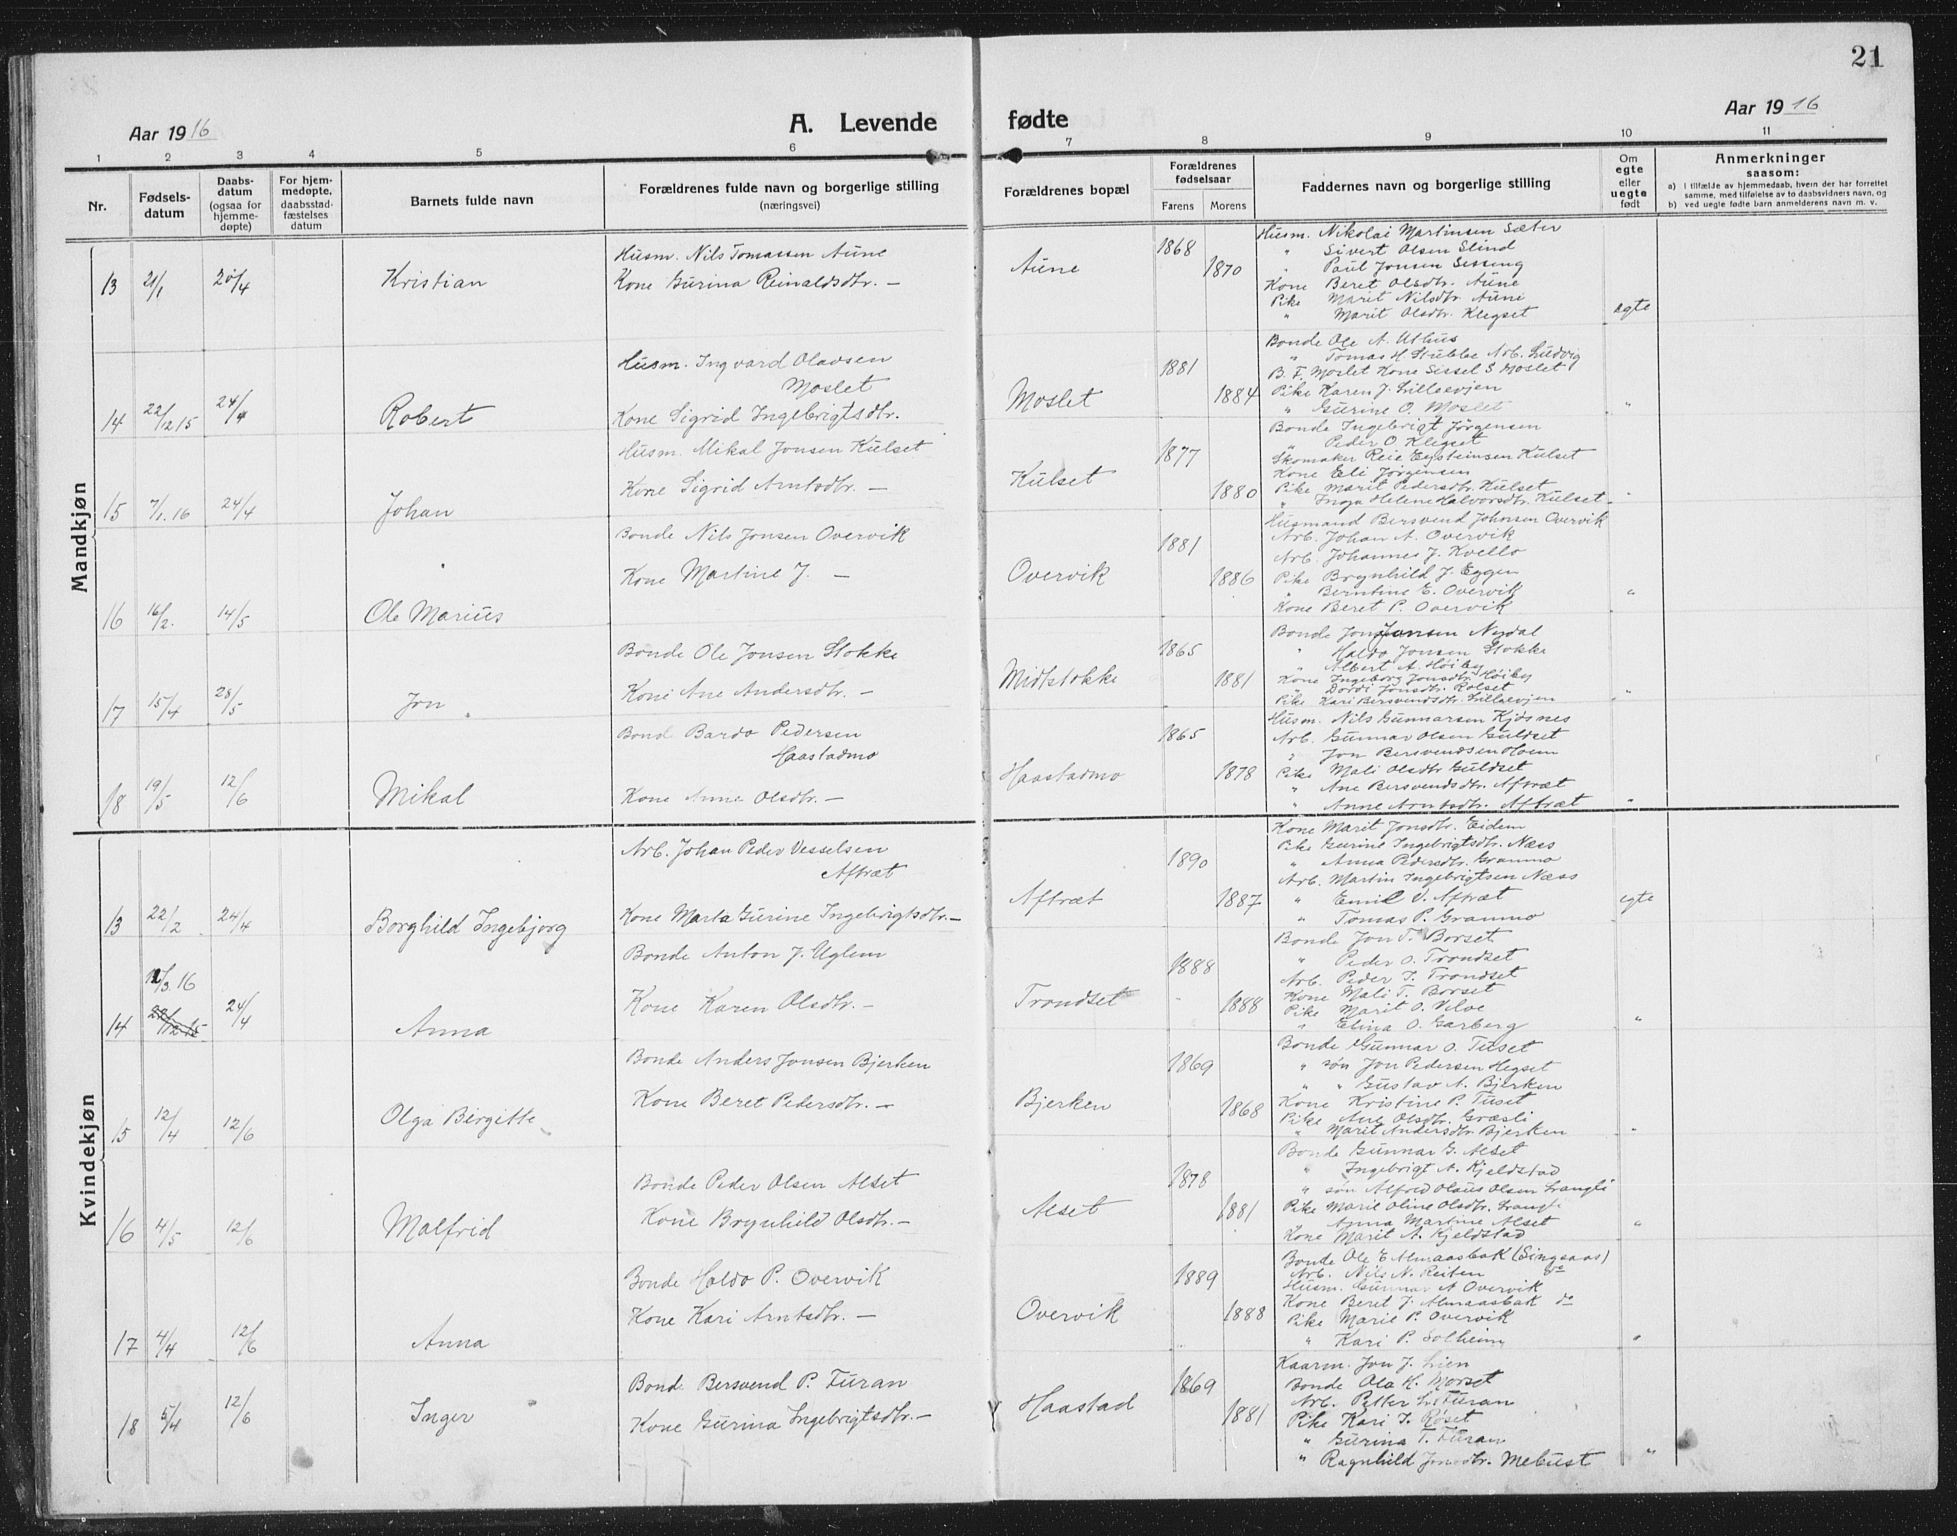 21
Aar 1916
A. Levende
fødte
Aar 1916
1 2 3 4 5 6 7 8 9 10 11
Nr.
Fødsels-
datum
Daabs-
datum
(ogsaa for
hjemme-
døpte)
For hjem-
medøpte,
daabsstad-
fæstelses
datum
Barnets fulde navn
Forældrenes fulde navn og borgerlige stilling
(næringsvei)
Forældrenes bopæl
Forældrenes
fødselsaar
Farens
Morens
Faddernes navn og borgerlige stilling
Om
egte
eller
uegte
født
Anmerkninger
saasom:
a) I tilfælde av hjemmedaab, hvem der har forrettet
samme, med tilføielse av to daabsvidners navn, og
b) ved uegte fødte barn anmelderens navn m. v.
Mandkjøn
13 21/1 20/4 Kristian
Husm. Nils Tomassen Aune
Kone Gurina Reinaldsdtr. —
Aune 1868 1870
Husm. Nikolai Martinsen Sæter
" Sivert Olsen Slind
" Paul Jonsen Sesseng
Kone Beret Olsdtr. Aune
Pike Marit Nilsdtr Aune
" Marit Olsdtr. Klegset
egte
14 22/12 15 24/4 Robert
Husm. Ingvard Olavsen
Moslet
Kone Sigrid Ingebrigtsdtr.
Moslet 1881 1884
Bonde Ole A. Uthus
" Tomas H. Stubbe Arb. Ludvig
B. F. Moslet Kone Sissel S Moslet
Pike Karen J. Lillaevjen
" Gurine O. Moslet "
15 7/1. 16 24/4 Johan
Husm. Mikal Jonsen Kulset
Kone Sigrid Arntsdtr. —
Kulset 1877 1880
Bonde Ingebrigt Jørgensen
" Peder O. Klegset
Skomaker Reie Eysteinsen Kulset
Kone Eli Jørgensen
Pike Marit Pedersdtr. Kulset
" Inga Helene Halvorsdtr. Kulset "
16 16/2. 14/5 Ole Marius
Bonde Nils Jonsen Overvik
Kone Martine J. —
Overvik 1881 1886
Husmand Bersvend Johnsen Overvik
Arb. Johan A. Overvik
Arb. Johannes J. Kvello
Pike Brynhild J. Eggen
" Berntine E. Overvik
Kone Beret P. Overvik "
17 15/4 28/5 Jon
Bonde Ole Jonsen Stokke
Kone Ane Andersdtr. —
Midtstokke 1865 1881
Bonde Jon Jonsen Nydal
" Haldo Jonsen Stokke
" Albert A. Høiby
Kone Ingeborg Jonsdtr. Høiby
" Dordi Jonsdtr. Rolset
Pike Kari Bersvendsdtr. Lillaevjen "
18 19/5 12/6 Mikal
Bonde Bardo Pedersen
Haastadmo
Kone Anne Olsdtr. —
Haastadmo 1865 1878
Husm. Nils Gunnarsen Kjøsnes
Arb. Gunnar Olsen Guldset
" Jon Bersvendsen Moen
Pike Mali Olsdtr Guldset
" Ane Bersvendsdtr. Aftræt
" Anne Arntsdtr. Aftræt "
Kvindekjøn
13 22/2 24/4 Borghild Ingebjørg
Arb. Johan Peder Vesselsen
Aftræt
Kone Marta Gurine Ingebrigtsdtr. —
Aftræt 1890 1887
Kone Marit Jonsdtr. Eidem
Pike Gurine Ingebrigtsdtr. Næss
" Anna Pedersdtr. Grammo
Arb. Martin Ingebrigtsen Næss
" Emil V. Aftræt
" Tomas P. Grammo
egte
14 12/3. 16 22/12 15 24/4 Anna
Bonde Anton J. Uglem
Kone Karen Olsdtr. —
Trondset 1888 1888
Bonde Jon T. Borset
" Peder O. Trondset
Arb. Peder J. Trondset
Kone Mali T. Borset
Pike Marit O. Velve
" Elina O. Garberg "
15 12/4 12/6 Olga Birgitte
Bonde Anders Jonsen Bjerken
Kone Beret Pedersdtr. —
Bjerken 1869 1868
Bonde Gunnar O. Tuset
" søn Jon Pedersen Hegset
" " Gustav A. Bjerken
Kone Kristine P. Tuset
Pike Ane Olsdtr. Græsli
" Marit Andersdtr. Bjerken "
16 4/5 12/6 Malfrid
Bonde Peder Olsen Alset
Kone Brynhild Olsdtr. —
Alset 1878 1881
Bonde Gunnar G. Alset
" Ingebrigt A. Kjeldstad
" søn Alfred Olaus Olsen Langli
Pike Marie Oline Olsdtr. Langli
" Anna Martine Alset
Kone Marit A. Kjeldstad "
17 4/4 12/6 Anna
Bonde Haldo P. Overvik
Kone Kari Arntsdtr. —
Overvik 1889 1888
Bonde Ole E Almaasbak (Singsaas)
Arb. Nils N. Reiten do
Husm. Gunnar A Overvik
Kone Beret J. Almaasbak do
Pike Marie P. Overvik
" Kari P. Solheim "
18 5/4 12/6 Inger
Bonde Bersvend P. Furan
Kone Gurina Ingebrigtsdtr. —
Haastad 1869 1881
Kaarm. Jon J. Lien
Bonde Ola H. Morset
Arb. Petter L. Furan
Pike Kari J. Røset
" Gurina T. Furan
" Ragnhild Jonsdtr. Mebust "